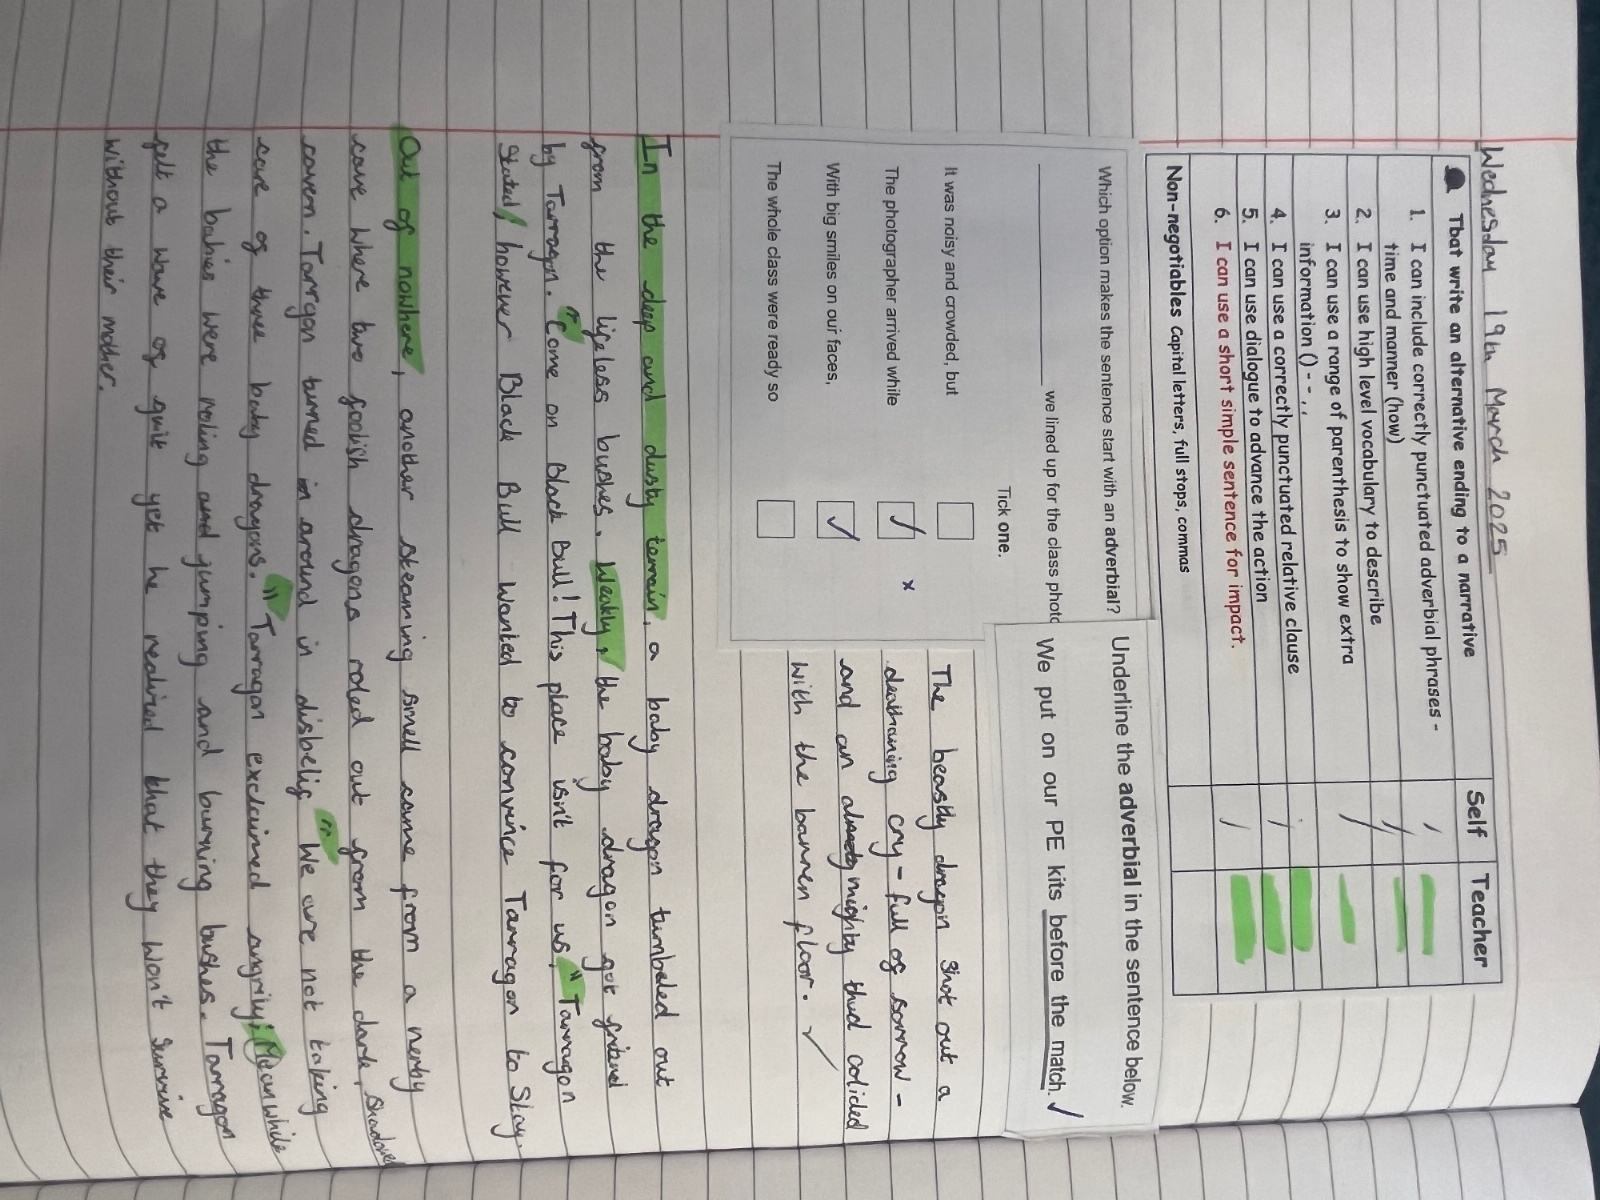 Wednesday 19th March 2025
That write an alternative ending to a narrative
Self
Teacher
1. I can include correctly punctuated adverbial phrases -
time and manner (how)
2. I can use high level vocabulary to describe
3. I can use a range of parenthesis to show extra
information () - - , ,
4. I can use a correctly punctuated relative clause
5. I can use dialogue to advance the action
6. I can use a short simple sentence for impact.
Non-negotiables Capital letters, full stops, commas
Which option makes the sentence start with an adverbial?
we lined up for the class photo
Tick one.
It was noisy and crowded, but
The photographer arrived while
With big smiles on our faces,
The whole class were ready so
Underline the adverbial in the sentence below.
We put on our PE kits before the match.
The beastly dragon shot out a
deafining cry - full of sorrow -
and an mighty thud colided
with the barren floor.
In the deep and dusty terrain, a baby dragon tumbeled out
from the lifeless bushes. Weakly, the baby dragon got
by Tarragon. "Come on Black Bull! This place isn't for us," Tarragon
stated, however Black Bull wanted to convince Tarragon to stay.
Out of nowhere, another steaming smell came from a nerby
cave where two foolish dragons roled out from the dark,
cavern. Tarrgon turned in around in disbelif. "We are not taking
care of three baby dragons." Tarragon exclaimed angrily; Meanwhile
the babies were roling and jumping and burning bushes. Tarragon
felt a wave of guilt yet he realized that they won't survive
without their mother.